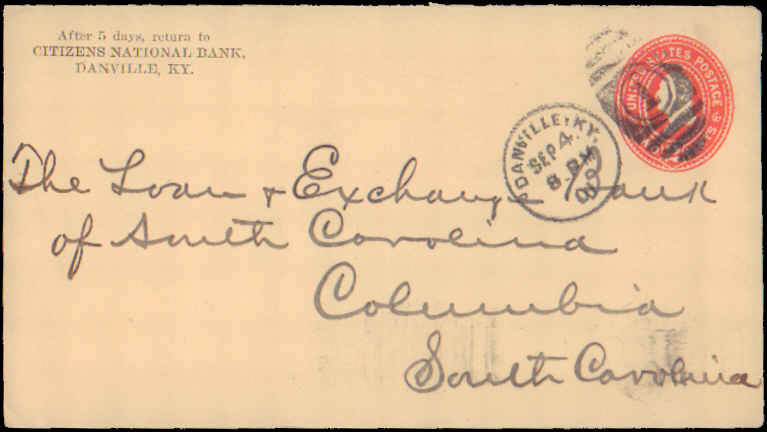 After 5 days, return to
CITIZENS NATIONAL BANK,
DANVILLE, KY.
UNITED STATES POSTAGE
DANVILLE, KY.
SEP 4
8 PM
The Loan & Exchange Bank
of South Carolina
Columbia
South Carolina